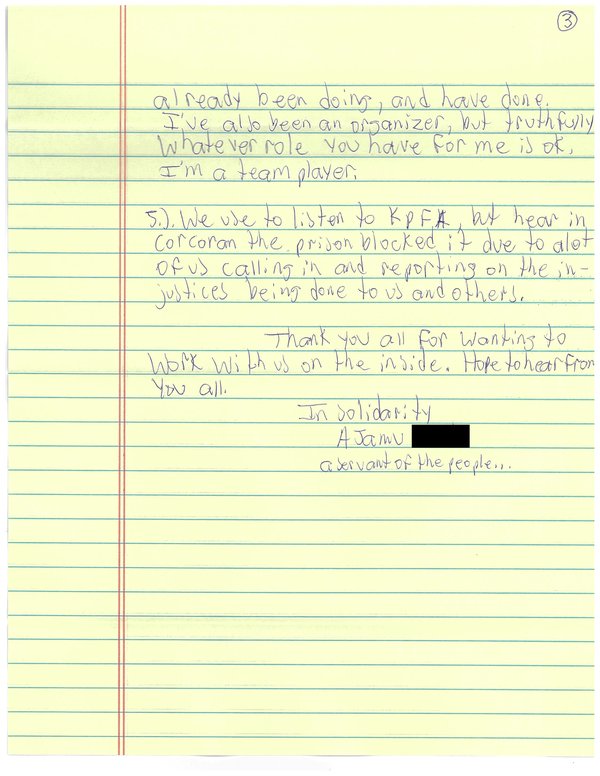 3
already been doing, and have done.
I've also been an organizer, but truthfully
whatever role you have for me is ok.
I'm a team player.
5.). We use to listen to KPFA, but hear in
corcoran the prison blocked it due to alot
of us calling in and reporting on the in-
justices being done to us and others.
Thank you all for wanting to
work with us on the inside. Hope to hear from
you all.
In solidarity
AJamu
a servant of the people...